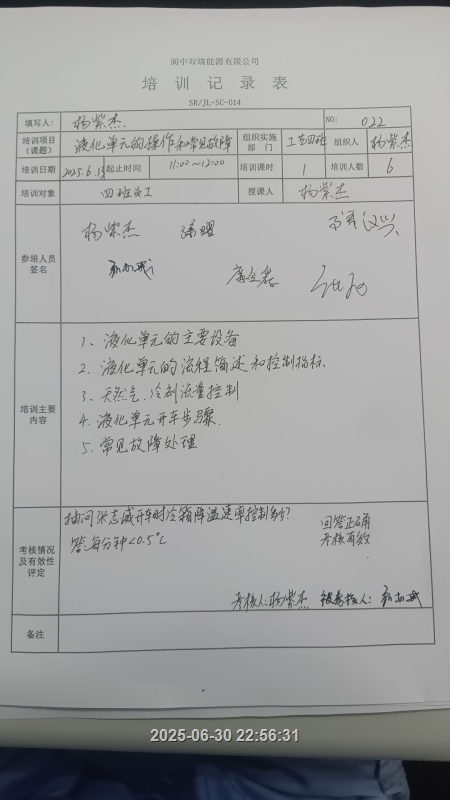 阆中双瑞能源有限公司
培训记录表
SR/JL-SC-014
填写人: 杨紫杰 NO: 022
培训项目（课题） 液化单元的操作和常见故障 组织实施部门 工艺四班 组织人 杨紫杰
培训日期 2025.6.13 起止时间 11:00~12:00 培训课时 1 培训人数 6
培训对象 四班员工 授课人 杨紫杰
参培人员签名
杨紫杰
培训主要内容
1、液化单元的主要设备
2、液化单元的流程简述和控制指标.
3、天然气、冷剂流量控制
4、液化单元开车步骤.
5、常见故障处理
考核情况及有效性评定
抽问张志威开车时冷箱降温速率控制多少?
答:每分钟<0.5℃
回答正确
考核有效
考核人:杨紫杰 被考核人:
备注
2025-06-30 22:56:31